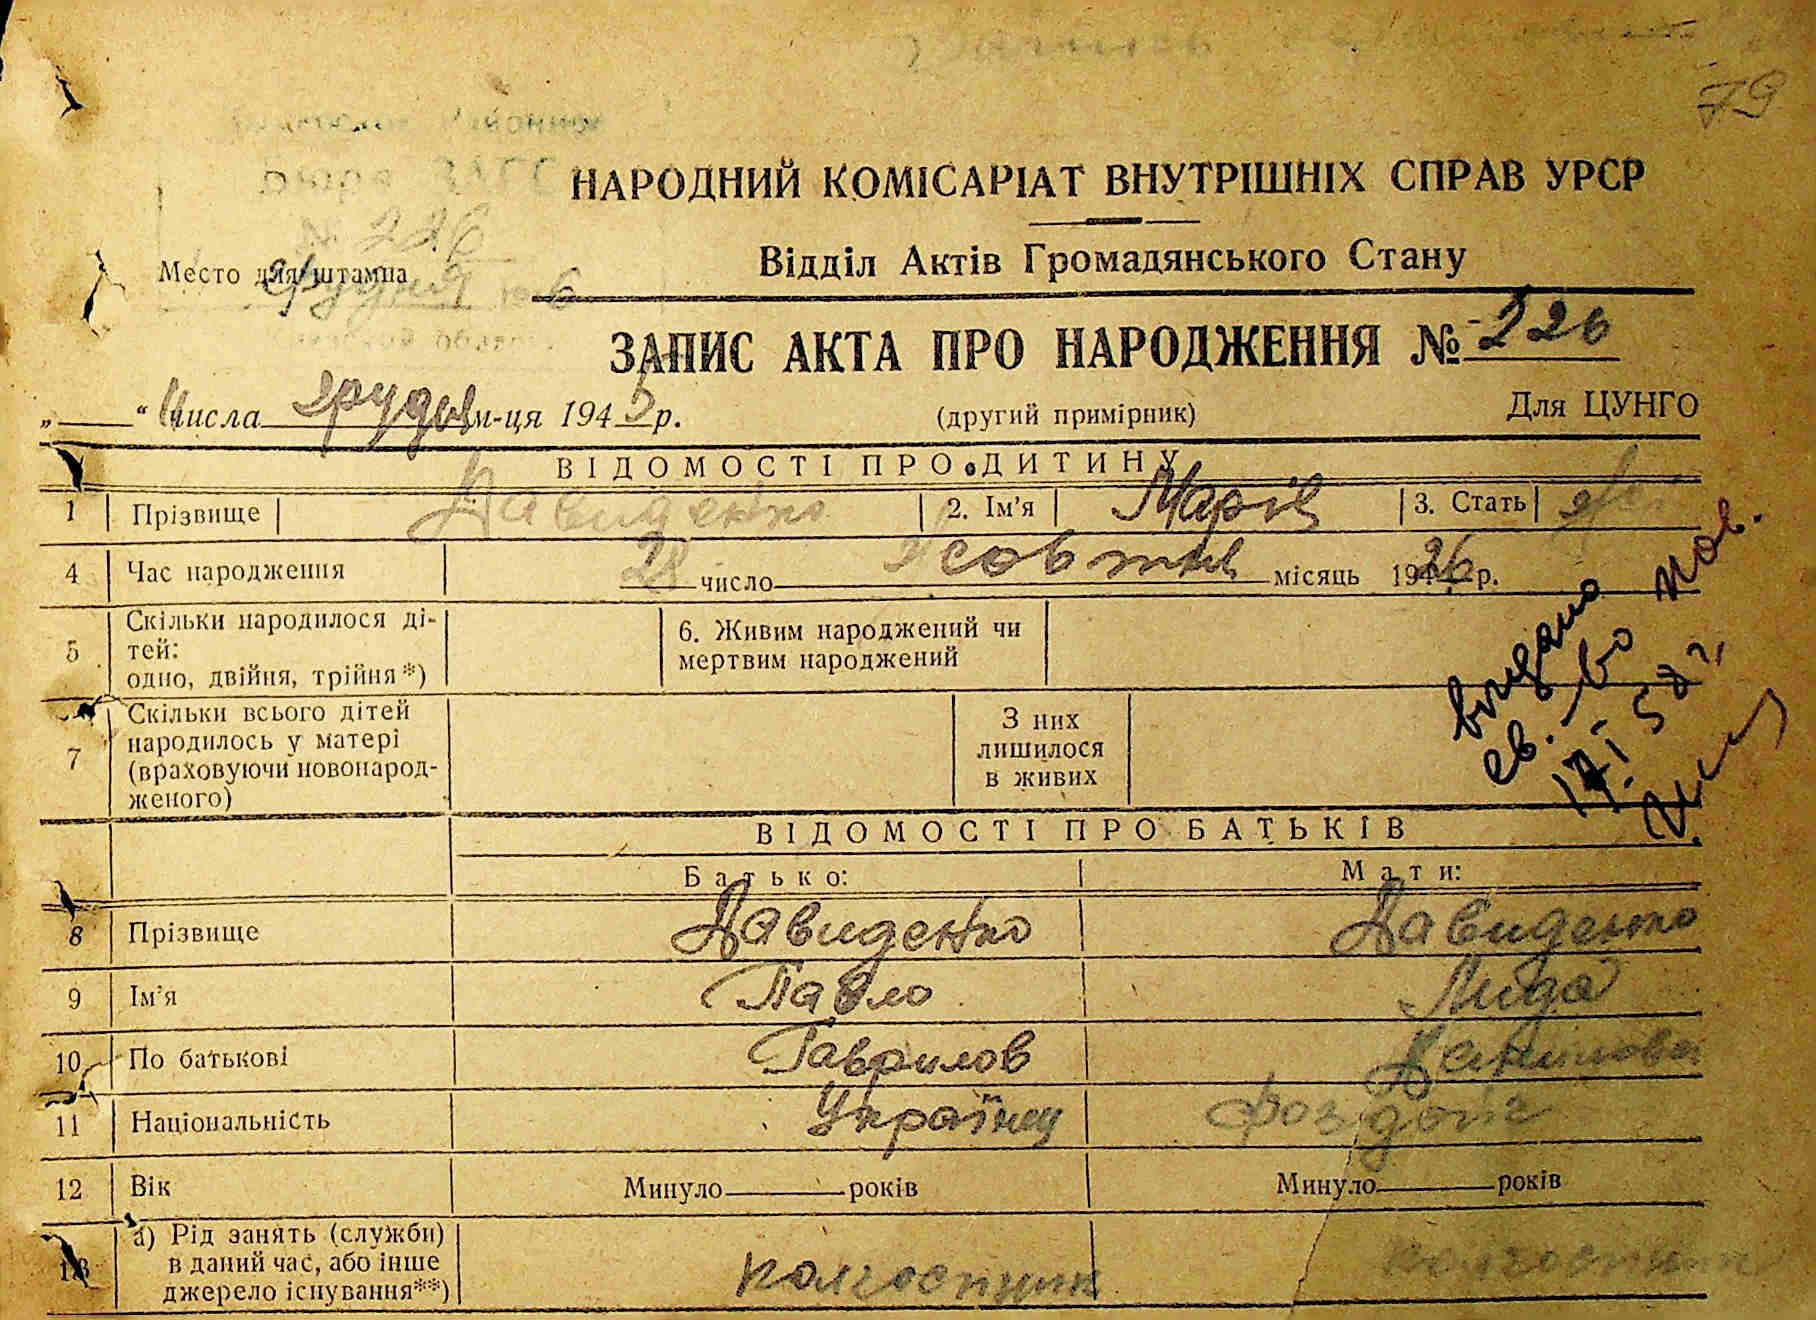 79
НАРОДНИЙ КОМІСАРІАТ ВНУТРІШНІХ СПРАВ УРСР
№ 226
Відділ Актів Громадянського Стану
Место для штампа
грудня 6
ЗАПИС АКТА ПРО НАРОДЖЕННЯ № 226
„ “ числа грудня м-ця 1945 р. (другий примірник) Для ЦУНГО
ВІДОМОСТІ ПРО ДИТИНУ
1 Прізвище Давиденко 2. Ім'я Марія 3. Стать
4 Час народження 28 число Жовтня місяць 1926 р.
5 Скільки народилося ді-
тей:
одно, двійня, трійня*)
6. Живим народжений чи
мертвим народжений
7 Скільки всього дітей
народилось у матері
(враховуючи новонарод-
женого)
З них
лишилося
в живих
видано
св.-во пов.
17.I 58 г.
ВІДОМОСТІ ПРО БАТЬКІВ
Батько: Мати:
8 Прізвище Давиденко Давиденко
9 Ім'я Павло Лида
10 По батькові Гаврилов Данилова
11 Національність Українец
12 Вік Минуло років Минуло років
13 а) Рід занять (служби)
в даний час, або інше
джерело існування**)
колгоспник колгоспник